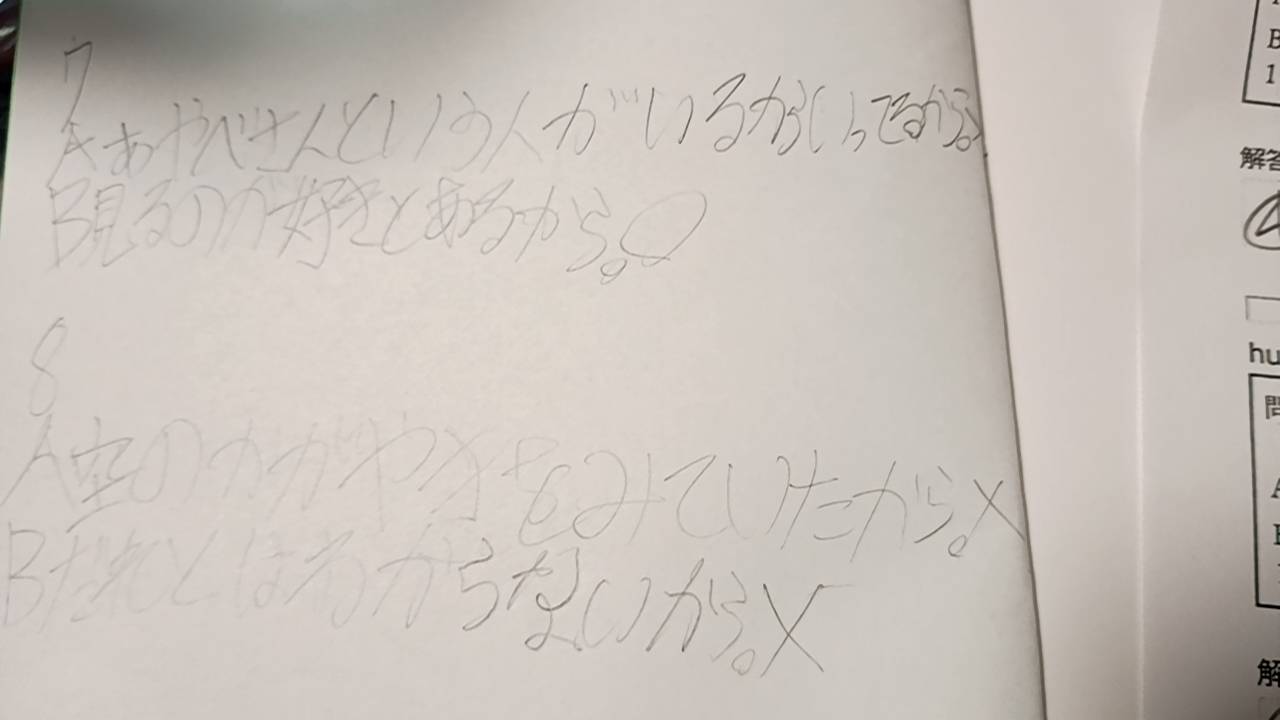 7
Aあやべさんという人がいるからいってるから。
B見るのが好きとあるから。○
8
A空のかがやきをみていけたから。×
Bだれとはるからないから。×
B
1
解答
hu
問
A
解